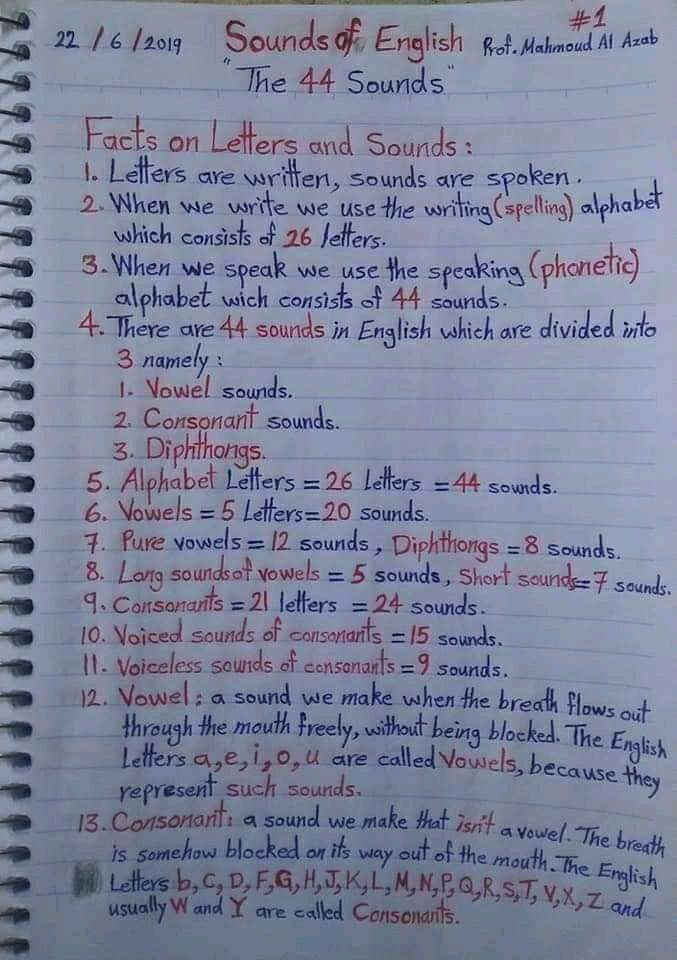 22 / 6 / 2019 Sounds of English #1 Prof. Mahmoud Al Azab
"The 44 Sounds"
Facts on Letters and Sounds :
1. Letters are written, sounds are spoken.
2. When we write we use the writing (spelling) alphabet
which consists of 26 letters.
3. When we speak we use the speaking (phonetic)
alphabet wich consists of 44 sounds.
4. There are 44 sounds in English which are divided into
3 namely :
1. Vowel sounds.
2. Consonant sounds.
3. Diphthongs.
5. Alphabet Letters = 26 letters = 44 sounds.
6. Vowels = 5 Letters = 20 sounds.
7. Pure vowels = 12 sounds, Diphthongs = 8 sounds.
8. Long sounds of vowels = 5 sounds, Short sounds = 7 sounds.
9. Consonants = 21 letters = 24 sounds.
10. Voiced sounds of consonants = 15 sounds.
11. Voiceless sounds of consonants = 9 sounds.
12. Vowel : a sound we make when the breath flows out
through the mouth freely, without being blocked. The English
Letters a, e, i, o, u are called Vowels, because they
represent such sounds.
13. Consonant : a sound we make that isn't a vowel. The breath
is somehow blocked on its way out of the mouth. The English
Letters b, C, D, F, G, H, J, K, L, M, N, P, Q, R, S, T, V, X, Z and
usually W and Y are called Consonants.